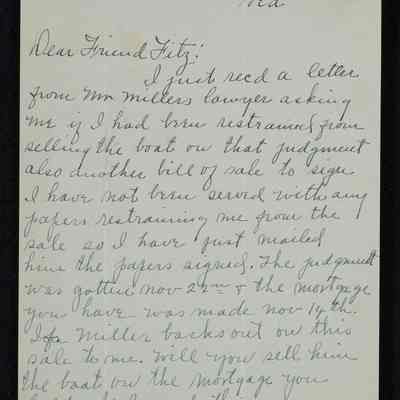 Dear Friend Fitz:
I just recd a letter
from Mr Millers lawyer asking
me if I had been restrained from
selling the boat on that judgment
also another bill of sale to sign
I have not been served with any
papers restraining me from the
sale so I have just mailed
him the papers signed. The judgment
was gotten nov 22nd & the mortgage
you have was made nov 14th.
If Miller backs out on this
sale to me. Will you sell him
the boat on the mortgage you